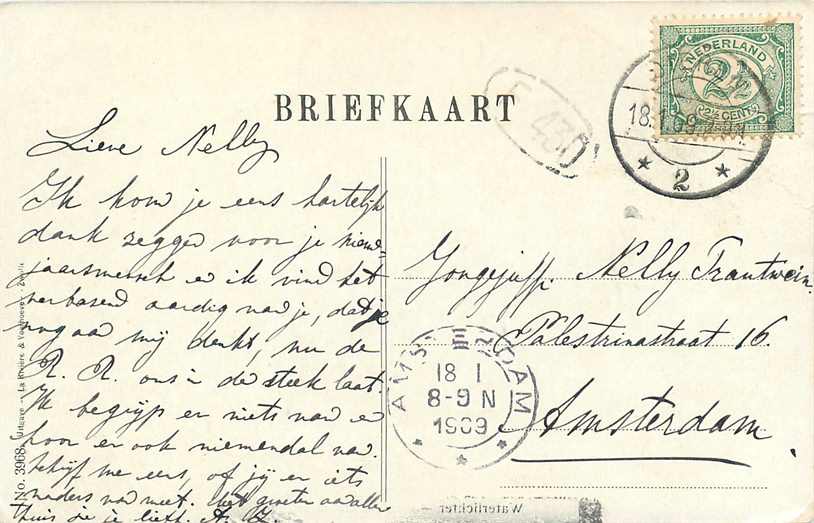 BRIEFKAART
NEDERLAND
2½
2½ CENT
18.1.09
2
F 430
Lieve Nelly
Ik kom je eens hartelijk
dank zeggen voor je nieuw=
jaarswensch en ik vind het
verbasend aardig van je, dat je
nog aan mij denkt, nu de
R. R. ons in de steek laat.
Ik begrijp er niets van en
hoor er ook niemendal van.
Schrijf me eens, of jij er iets
naders van weet. Met groeten aan allen
thuis je liefh.
Jongejuffr. Nelly Trautwein.
Palestrinastraat 16.
Amsterdam.
AMSTERDAM
18 1
8-9 N
1909
No. 3968. Uitgave La Rivière & Voorhoeve, Zwolle
Waterlichter